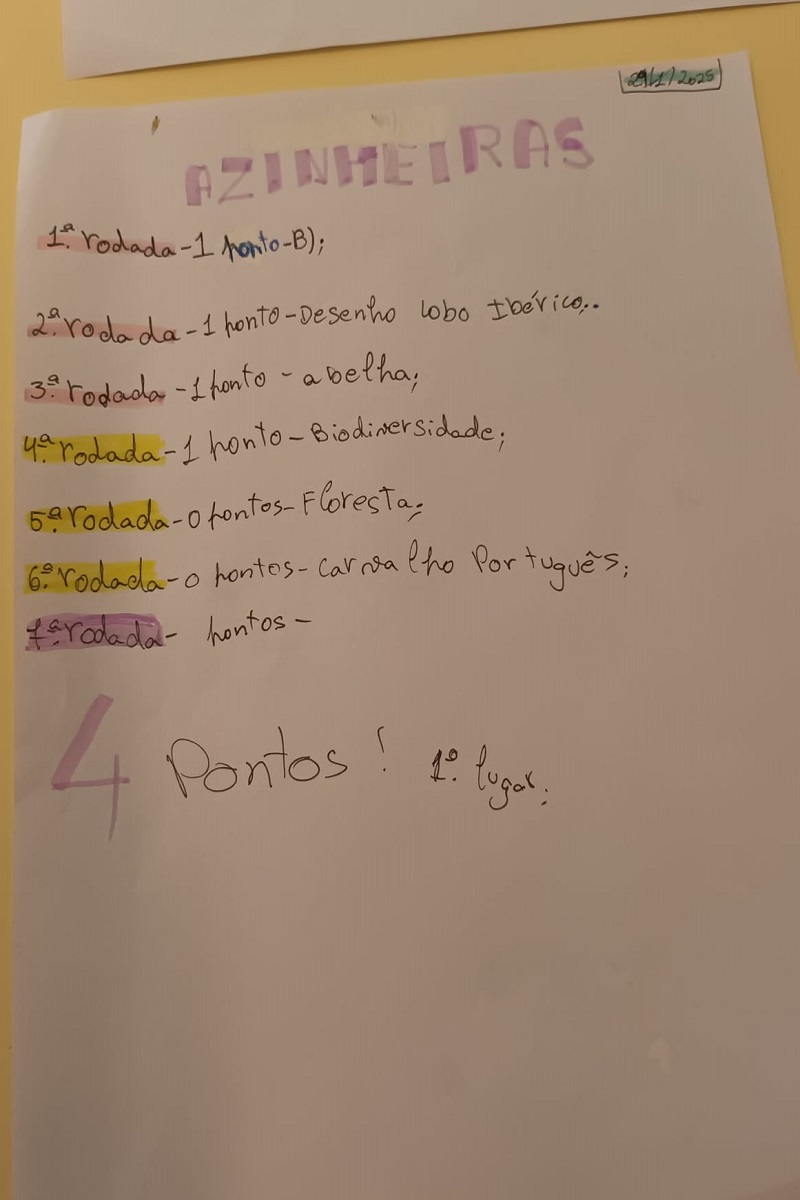 29/1/2025
AZINHEIRAS
1.ª rodada-1 ponto-B);
2.ª rodada-1 ponto-Desenho lobo Ibérico..
3.ª rodada-1 ponto-abelha;
4.ª rodada-1 ponto-Biodiversidade;
5.ª rodada-0 pontos-Floresta;
6.ª rodada-0 pontos-carvalho Português;
7.ª rodada- pontos-
4 Pontos! 1.º lugar;